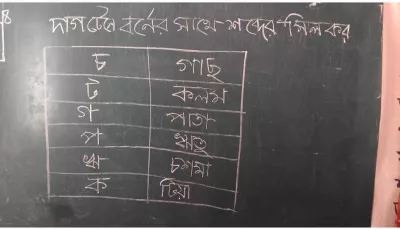 দাগটেনে বর্নের সাথে শব্দের মিল কর
চ গাছ
ট কলম
গ পাতা
প ঋতু
ঋ চশমা
ক টিয়া